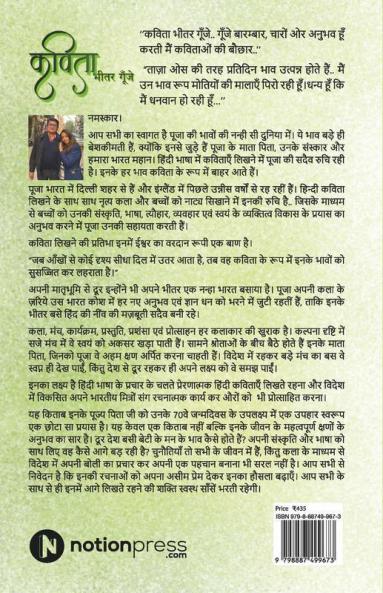 कविता
भीतर गूँजे
“कविता भीतर गूँजे.. गूँजे बारम्बार, चारों ओर अनुभव हूँ
करती मैं कविताओं की बौछार..”
“ताज़ा ओस की तरह प्रतिदिन भाव उत्पन्न होते हैं.. मैं
उन भाव रूप मोतियों की मालाएँ पिरो रही हूँ।धन्य हूँ कि
मैं धनवान हो रही हूँ...”
नमस्कार।
आप सभी का स्वागत है पूजा की भावों की नन्ही सी दुनिया में। ये भाव बड़े ही
बेशकीमती हैं, क्योंकि इनसे जुड़े हैं पूजा के माता पिता, उनके संस्कार और
हमारा भारत महान। हिंदी भाषा में कविताएँ लिखने में पूजा की सदैव रुचि रही
है। इनके हर भाव कविता के रूप में बाहर आते हैं।
पूजा भारत में दिल्ली शहर से हैं और इंग्लैंड में पिछले उन्नीस वर्षों से रह रहीं हैं। हिन्दी कविता
लिखने के साथ साथ नृत्य कला और बच्चों को नाट्य सिखाने में इनकी रुचि है.. जिसके माध्यम
से बच्चों को उनकी संस्कृति, भाषा, त्यौहार, व्यवहार एवं स्वयं के व्यक्तित्व विकास के प्रयास का
अनुभव करने में पूजा उनकी सहायता करती हैं।
कविता लिखने की प्रतिभा इनमें ईश्वर का वरदान रूपी एक बाण है।
“जब आँखों से कोई दृश्य सीधा दिल में उतर आता है, तब वह कविता के रूप में इनके भावों को
सुसज्जित कर लहराता है।”
अपनी मातृभूमि से दूर इन्होंने भी अपने भीतर एक नन्हा भारत बसाया है। पूजा अपनी कला के
ज़रिये उस भारत कोश में हर नए अनुभव एवं ज्ञान धन को भरने में जुटी रहतीं हैं, ताकि इनके
भीतर बसे हिंद की नींव की मज़बूती सदैव बनी रहे।
कला, मंच, कार्यक्रम, प्रस्तुति, प्रशंसा एवं प्रोत्साहन हर कलाकार की खुराक है। कल्पना दृष्टि में
सजे मंच में वे स्वयं को अकसर खड़ा पाती हैं। सामने श्रोताओं के बीच बैठे होते हैं इनके माता
पिता, जिनको पूजा वे अहम क्षण अर्पित करना चाहती हैं। विदेश में रहकर बड़े मंच का बस वे
स्वप्न ही देख पाईं, किंतु देश से दूर रहकर ही अपने लक्ष्य को वे समझ पाईं।
इनका लक्ष्य है हिंदी भाषा के प्रचार के चलते प्रेरणात्मक हिंदी कविताएँ लिखते रहना और विदेश
में विकसित अपने भारतीय मित्रों संग रचनात्मक कार्य कर औरों को भी प्रोत्साहित करना।
यह किताब इनके पूज्य पिता जी को उनके 70वे जन्मदिवस के उपलक्ष्य में एक उपहार स्वरूप
एक छोटा सा प्रयास है। यह केवल एक किताब नहीं बल्कि इनके जीवन के महत्वपूर्ण क्षणों के
अनुभव का सार है। दूर देश बसी बेटी के मन के भाव कैसे होते हैं? अपनी संस्कृति और भाषा को
साथ लिए वह कैसे आगे बढ़ रही है? चुनौतियाँ तो सभी के जीवन में हैं, किंतु कला के माध्यम से
विदेश में अपनी बोली का प्रचार कर अपनी एक पहचान बनाना भी सरल नहीं है। आप सभी से
निवेदन है कि इनकी रचनाओं को अपना असीम प्रेम देकर इनका हौसला बढ़ाएँ। आप सभी के
साथ से ही इनमें आगे लिखते रहने की शक्ति स्वस्थ साँसें भरती रहेगी।
Price ₹435
ISBN 979-8-88749-967-3
9 798887 499673
N notionpress
.com